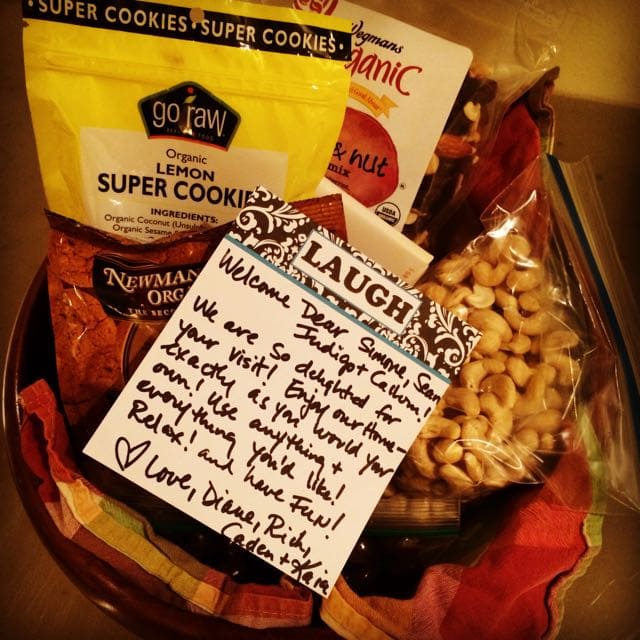 · SUPER COOKIES · SUPER COOKIES ·
go raw
Organic
LEMON
SUPER COOKIE
INGREDIENTS:
Organic Coconut
Organic Sesame
Wegmans
Organic
& nut
mix
USDA
NEWMAN
ORG
THE SEC
LAUGH
Welcome Dear Simone, Sean
Indigo + Callum,
We are so delighted for
your visit! Enjoy our Home-
Exactly as you would your
own! Use anything +
everything you'd like!
Relax! and have Fun!
♡ Love, Diane, Rich,
Caden + Kaia